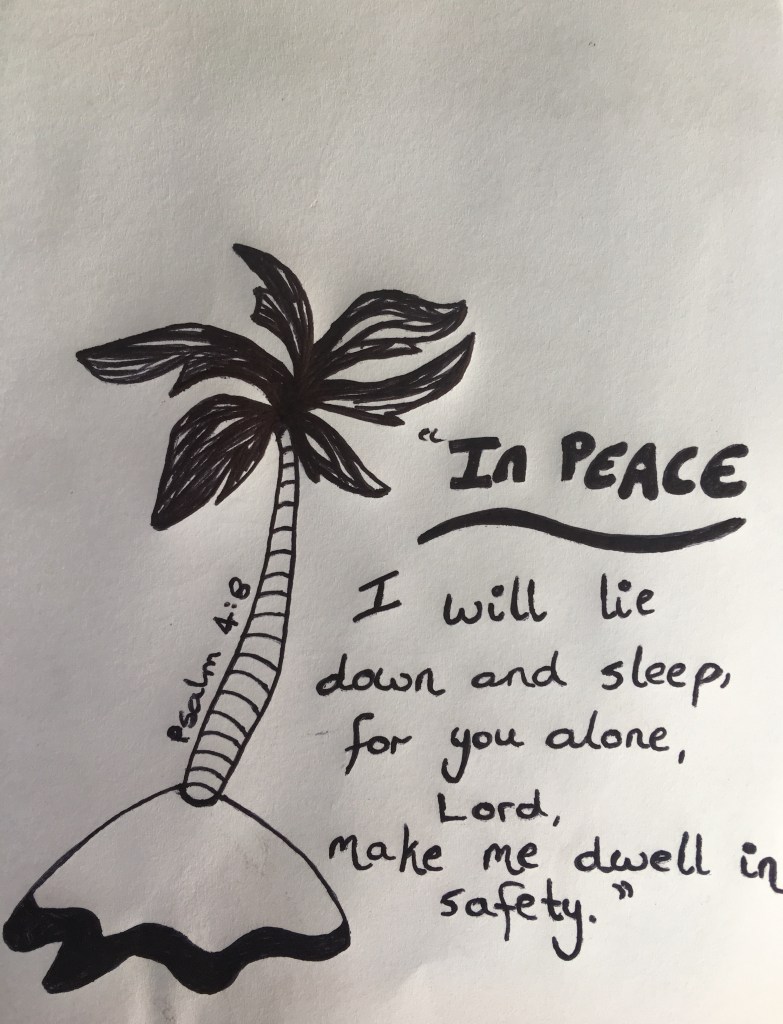 "In PEACE
I will lie
down and sleep,
for you alone,
Lord,
make me dwell in
safety."
Psalm 4:8